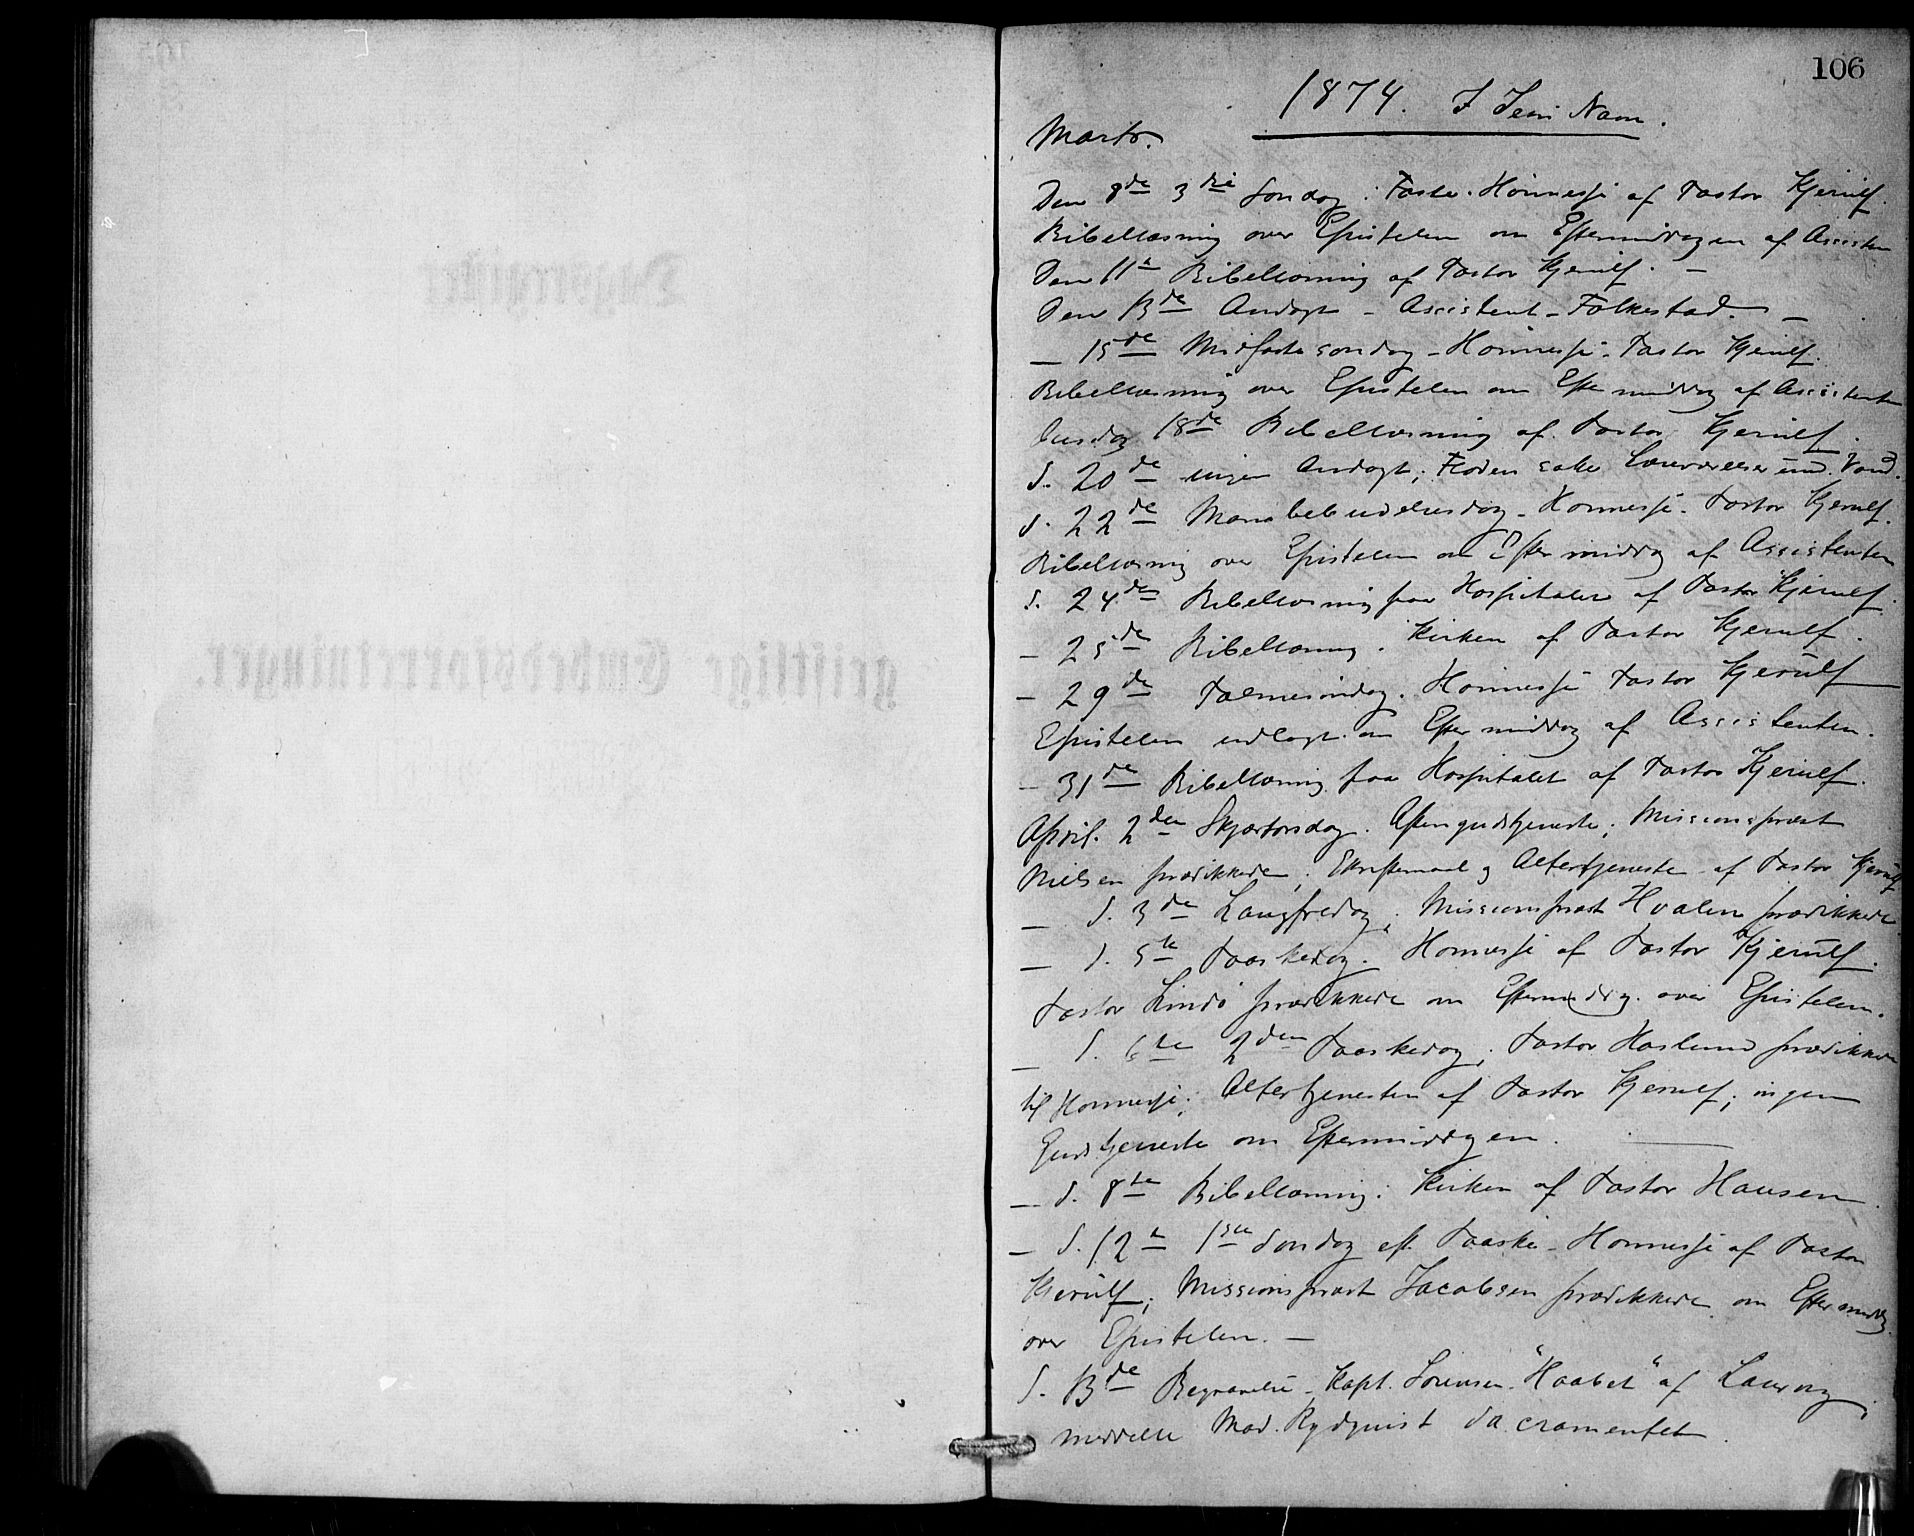 106
1874. I Jesu Navn.
Marts.
Den 8de 3die Søndag i Faste. Høimesse af Pastor Kjerulf.
Bibellæsning over Epistelen om Eftermiddagen af Assisten
Den 11te Bibellæsning af Pastor Kjerulf. –
Den 13de Andagt – Assistent – Folkestad. –
– 15de Midfaste søndag – Høimesse – Pastor Kjerulf.
Bibellæsning over Epistelen om Eftermiddag af Assistenten
Onsdag 18de Bibellæsning af Pastor Kjerulf.
d. 20de ingen Andagt; Floden satte Læseværelset und. Vand.
d. 22de Mariæ bebudelsesdag – Høimesse – Pastor Kjerulf.
Bibellæsning over Epistelen om Eftermiddag af Assistenten
d. 24de Bibellæsning paa Hospitalet af Pastor Kjerulf.
– 25de Bibellæsning i Kirken af Pastor Kjerulf.
– 29de Palmesøndag. Høimesse Pastor Kjerulf
Epistelen udlagt om Eftermiddag af Assistenten.
– 31de Bibellæsning paa Hospitalet af Pastor Kjerulf.
April. 2den Skjærtorsdag. Aftengudstjeneste; Missionspræst
Nielsen prædikkede; Skriftemaal og Altertjeneste af Pastor Kjerulf
– d. 3de Langfredag; Missionspræst Hvalen prædikkede
– d. 5te Paaskedag. Høimesse af Pastor Kjerulf.
Pastor Lindø prædikkede om Eftermiddag over Epistelen.
– d. 6te 2den Paaskedag; Pastor Haslund prædikkede
til Høimesse; Altertjenesten af Pastor Kjerulf; ingen
Gudstjeneste om Eftermiddagen.
– d. 8te Bibellæsning i Kirken af Pastor Hansen
– d. 12te 1ste Søndag eft. Paaske – Høimesse af Pastor
Kjerulf; Missionspræst Jacobsen prædikkede om Eftermiddag
over Epistelen. –
d. 13de Begravelse – Kapt. Sørensen "Haabet" af Laurvig;
meddelte Mad. Rydquist Sacramentet.